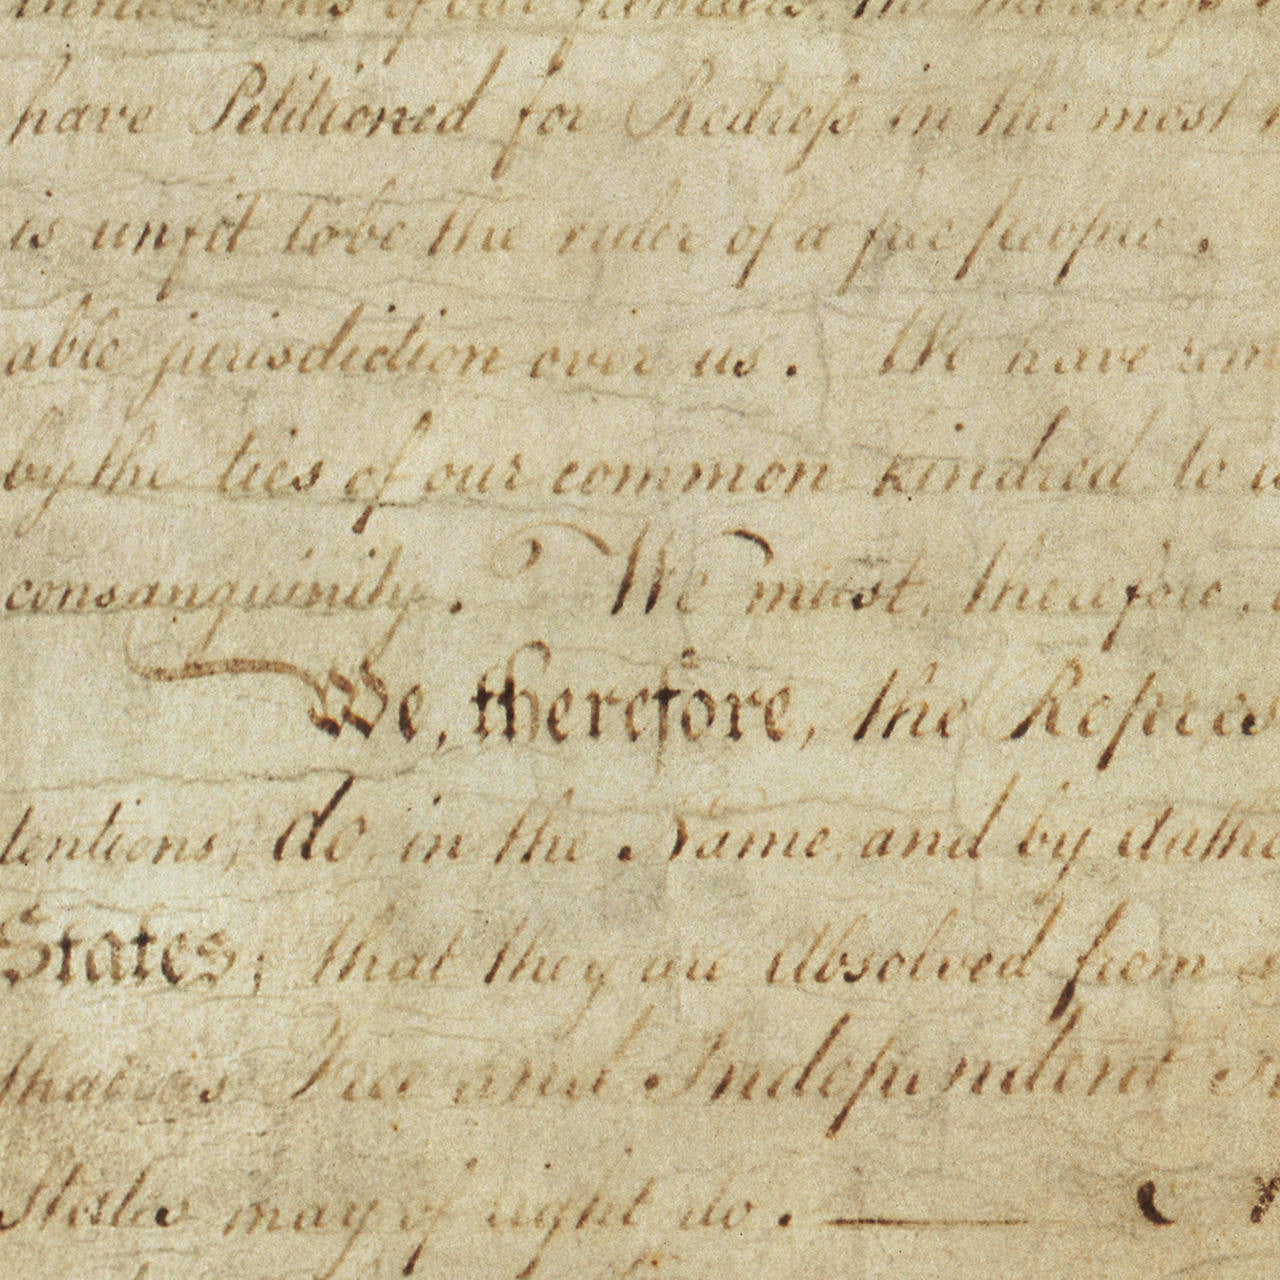 inhabitants of our frontiers, the merciless
have Petitioned for Redreſs in the most
is unfit tobe the ruler of a free people.
able jurisdiction over us. We have rem
by the ties of our common kindred to
consanguinity. We must, therefore,
We, therefore, the Repres
tentions, do, in the Name, and by Autho
States; that they are Absolved from
that as Free and Independent
States may of right do.